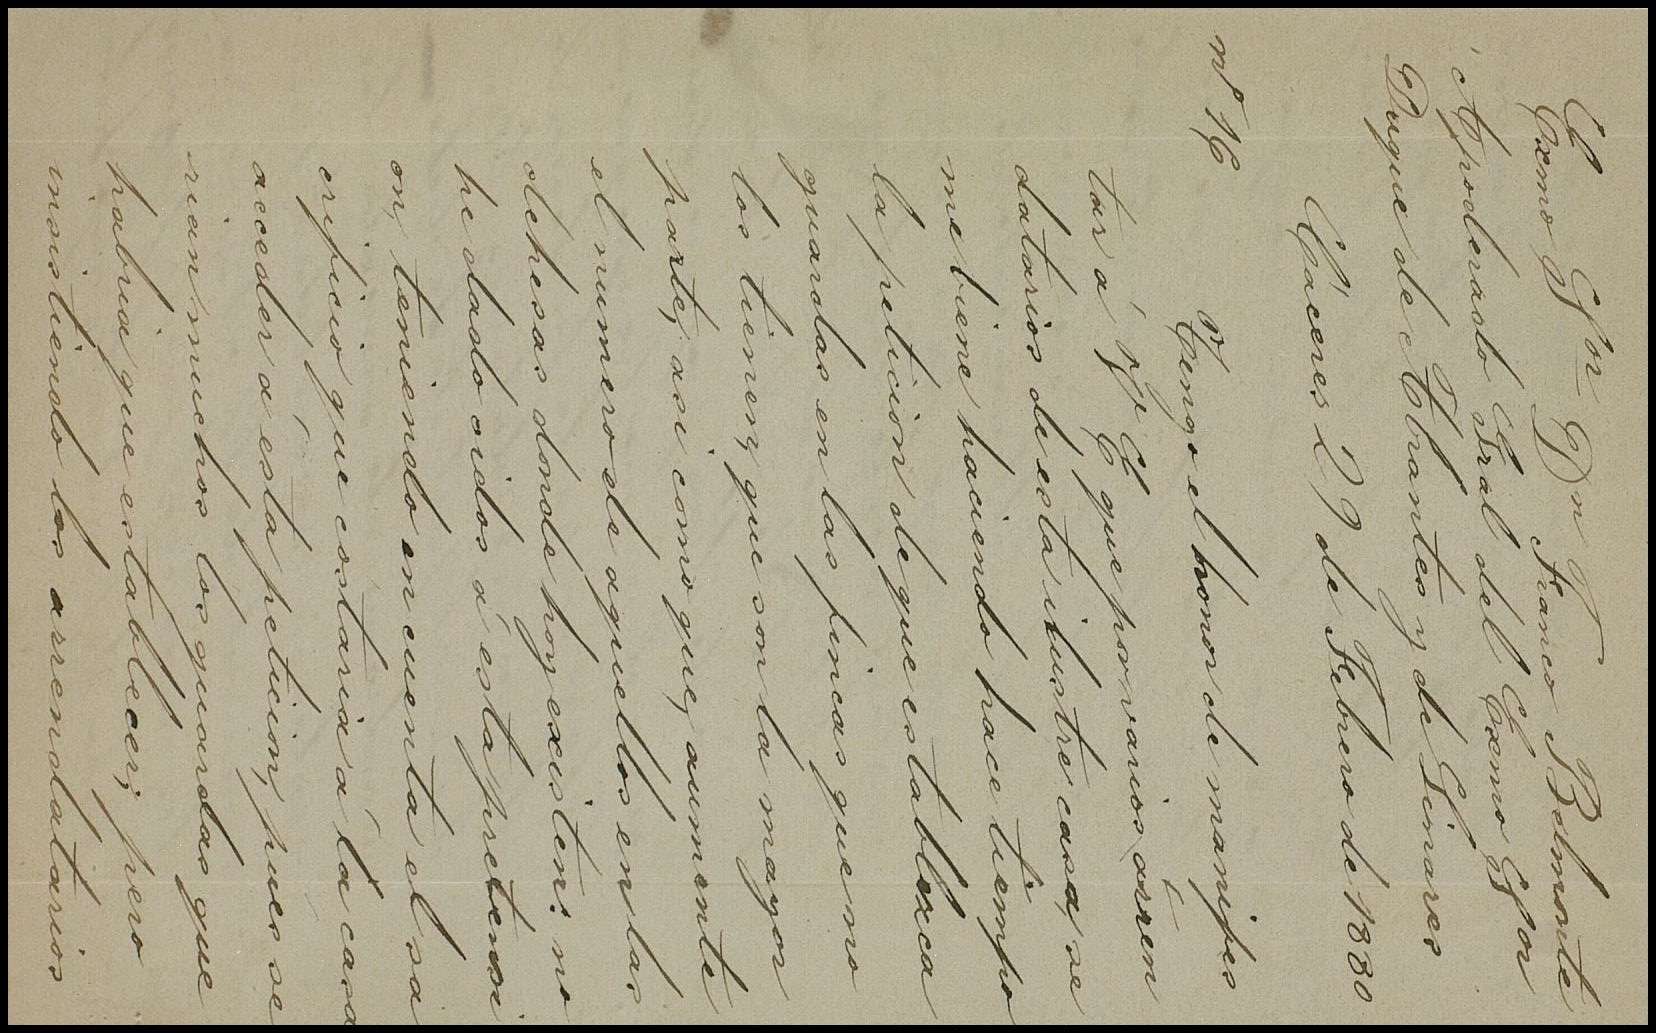 Excmo Sor Dn F Franco Belmonte
Apoderado Gral del Excmo Sor
Duque de Abrantes y de Linares
Cáceres 29 de Febrero de 1880
Nº 16
Tengo el honor de manifes
tar á V. E. que por varios arren
datarios de esta ilustre casa, se
me biene haciendo hace tiempo
la peticion de que establezca
guardas en las fincas que no
los tienen, que son la mayor
parte, asi como que, aumente
el numero de aquellos en las
dehesas donde hoy existen: no
he dado oidos á esta pretensi
on, teniendo en cuenta el sa
crificio que costaria á la casa
acceder á esta peticion, pues se
rian muchos los guardas que
habria que establecer; pero
insistiendo los arrendatarios